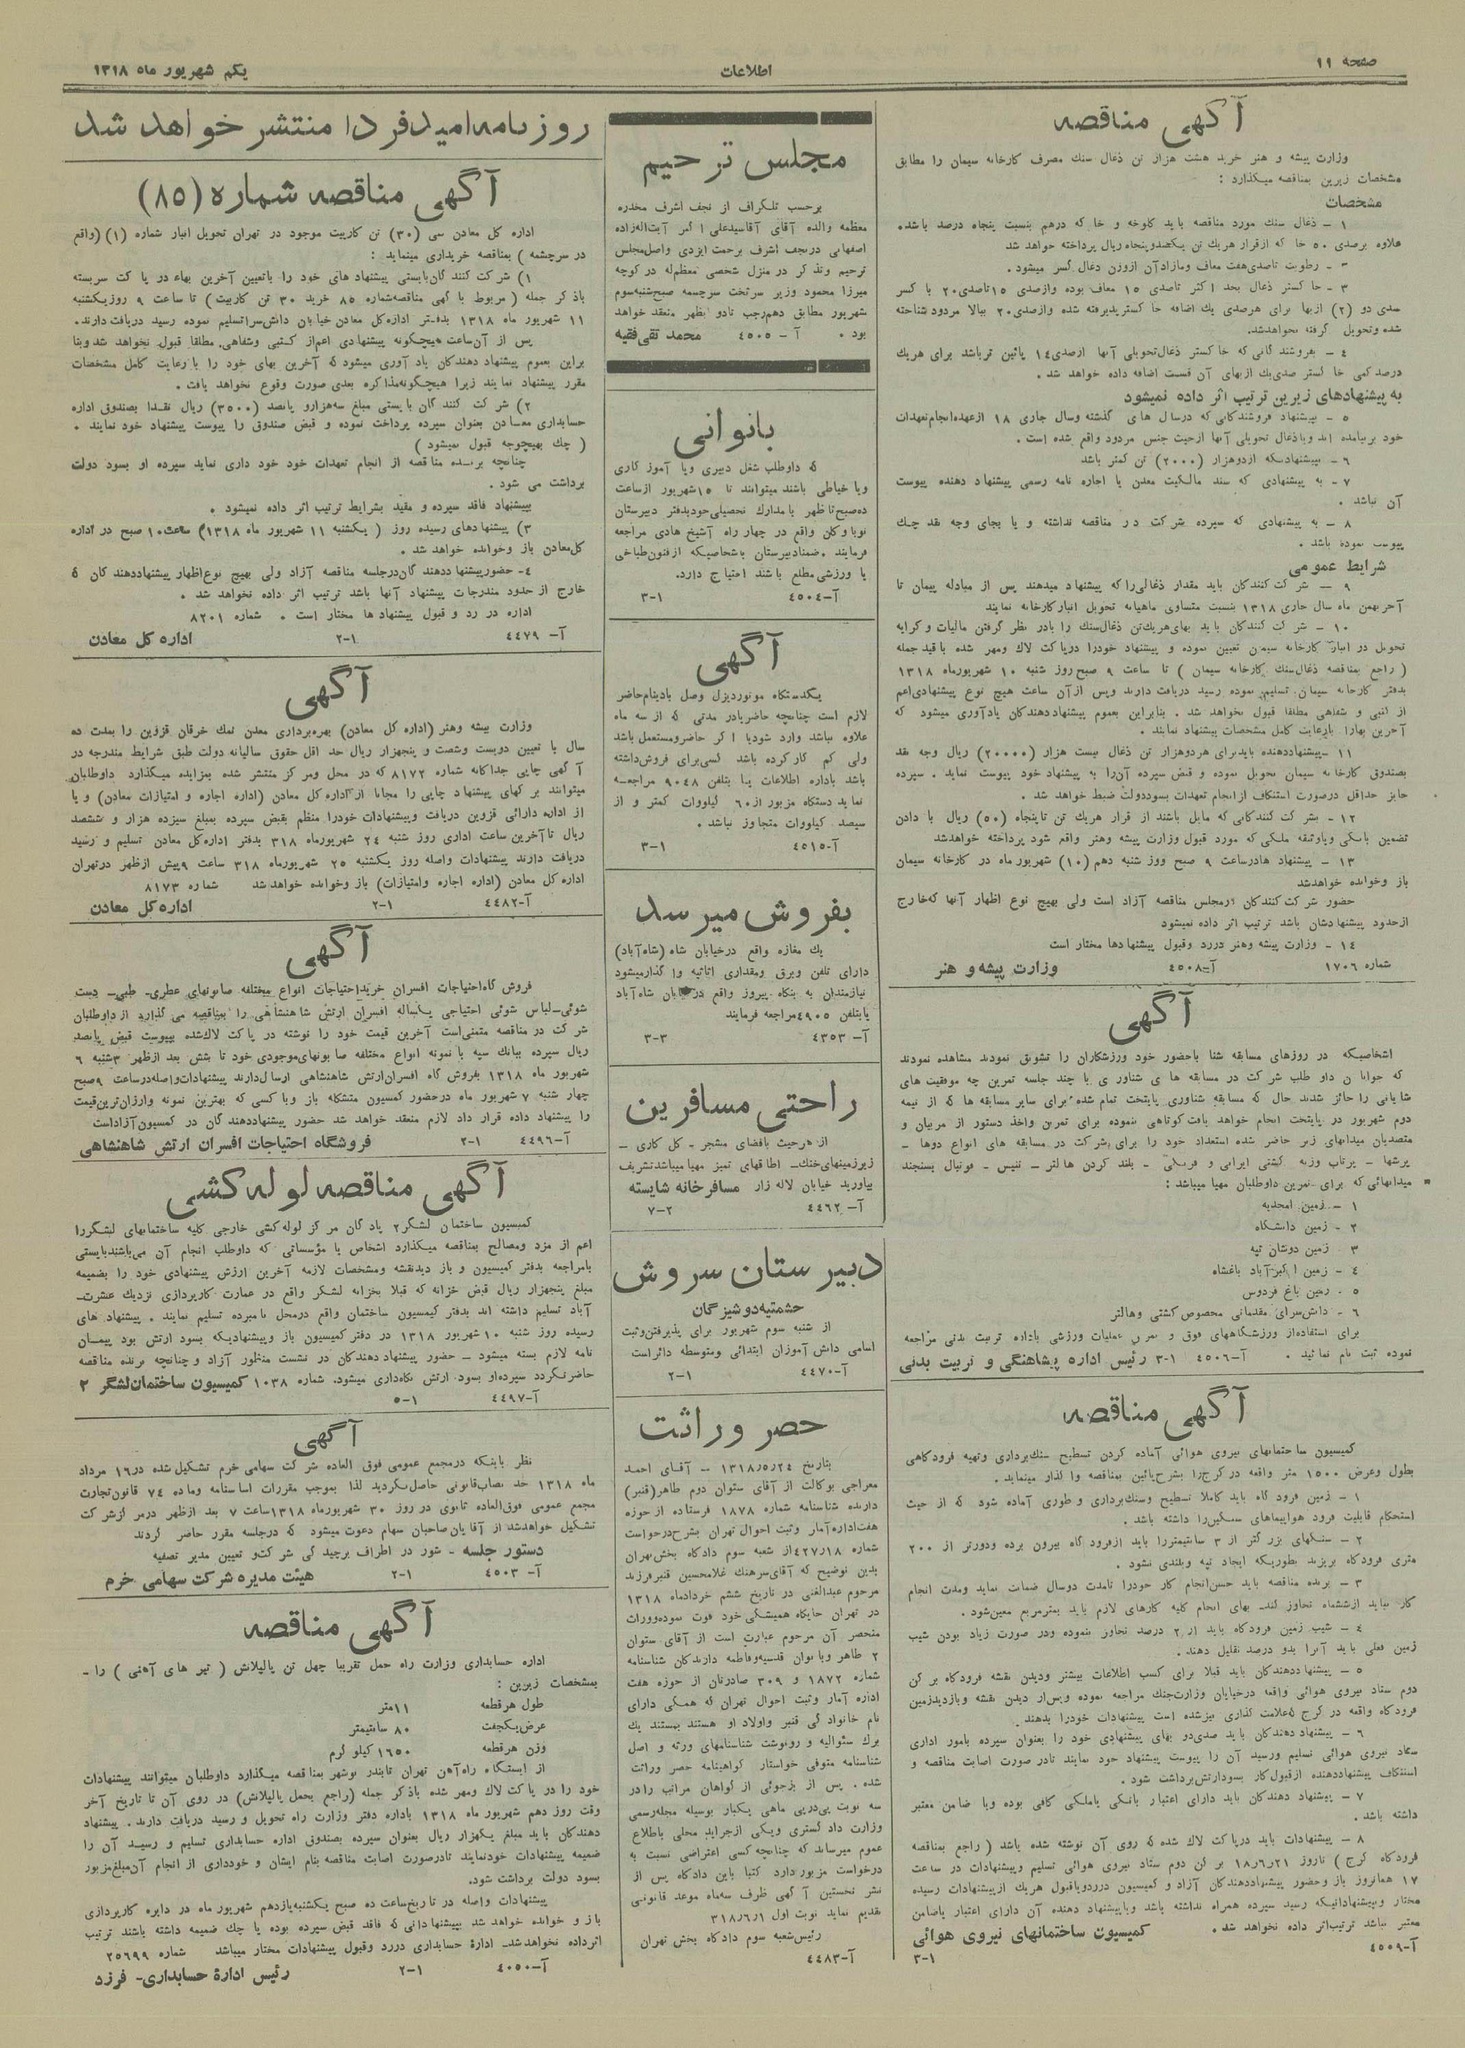 صفحه ۱۱
اطلاعات
یکم شهریور ماه ۱۳۱۸
آگهی مناقصه
وزارت پیشه و هنر خرید هشت هزار تن ذغال سنگ مصرف کارخانه سیمان را مطابق
مشخصات زیرین بمناقصه میگذارد :
مشخصات
۱ - ذغال سنگ مورد مناقصه باید کلوخه و خاکه درهم بنسبت پنجاه درصد باشد.
علاوه برصدی ۵۰ خاکه ازقرار هریک تن یکصدوپنجاه ریال پرداخته خواهد شد
۲ - رطوبت تاصدی هفت معاف ومازاد آن ازوزن ذغال کسر میشود.
۳ - خاکستر ذغال بحد اکثر تاصدی ۱۵ معاف بوده وازصدی ۱۵ تاصدی ۲۰ با کسر
صدی دو (۲) ازبها برای هرصدی یک اضافه خاکستر پذیرفته شده وازصدی ۲۰ ببالا مردود شناخته
شده وتحویل گرفته نخواهد شد.
۴ - بفروشندگانی که خاکستر ذغال تحویلی آنها ازصدی ۱۴ پائین تر باشد برای هریک
درصد کمی خاکستر صدی یک ازبهای آن قسمت اضافه داده خواهد شد .
به پیشنهادهای زیرین ترتیب اثر داده نمیشود
۵ - پیشنهاد فروشندگانی که درسال های گذشته وسال جاری ۱۸ ازعهده انجام تعهدات
خود برنیامده اند ویا ذغال تحویلی آنها ازحیث جنس مردود واقع شده است .
۶ - پیشنهادیکه ازدوهزار (۲۰۰۰) تن کمتر باشد
۷ - به پیشنهادی که سند مالکیت معدن یا اجاره نامه رسمی پیشنهاد دهنده پیوست
آن نباشد .
۸ - به پیشنهادی که سپرده شرکت در مناقصه نداشته و یا بجای وجه نقد چک
پیوست نموده باشد .
شرایط عمومی
۹ - شرکت کنندگان باید مقدار ذغالی را که پیشنهاد میدهند پس از مبادله پیمان تا
آخر بهمن ماه سال جاری ۱۳۱۸ بنسبت متساوی ماهیانه تحویل انبار کارخانه نمایند
۱۰ - شرکت کنندگان باید بهای هریک تن ذغال سنگ را بادر نظر گرفتن مالیات و کرایه
تحویل در انبار کارخانه سیمان تعیین نموده و پیشنهاد خودرا درپاکت لاک ومهر شده باقید جمله
( راجع بمناقصه ذغال سنگ کارخانه سیمان ) تا ساعت ۹ صبح روز شنبه ۱۰ شهریورماه ۱۳۱۸
بدفتر کارخانه سیمان تسلیم نموده رسید دریافت دارند وپس ازآن ساعت هیچ نوع پیشنهادی اعم
از کتبی و شفاهی مطلقا قبول نخواهد شد . بنابراین بعموم پیشنهاد دهندگان یادآوری میشود که
آخرین بهارا بارعایت کامل مشخصات پیشنهاد نمایند .
۱۱ - پیشنهاد دهنده باید برای هردوهزار تن ذغال بیست هزار (۲۰۰۰۰) ریال وجه نقد
بصندوق کارخانه سیمان تحویل نموده و قبض سپرده آن را به پیشنهاد خود پیوست نماید . سپرده
حایز حداقل درصورت استنکاف ازانجام تعهدات بسود دولت ضبط خواهد شد .
۱۲ - بشرکت کنندگانی که مایل باشند از قرار هریک تن تاپنجاه (۵۰) ریال با دادن
تضمین بانکی ویاوثیقه ملکی که مورد قبول وزارت پیشه وهنر واقع شود پرداخته خواهد شد
۱۳ - پیشنهاد هادر ساعت ۹ صبح روز شنبه دهم (۱۰) شهریور ماه در کارخانه سیمان
باز وخوانده خواهد شد
حضور شرکت کنندگان درمجلس مناقصه آزاد است ولی بهیچ نوع اظهار آنها که خارج
ازحدود پیشنهادشان باشد ترتیب اثر داده نمیشود
۱۴ - وزارت پیشه وهنر دررد وقبول پیشنهادها مختار است
شماره ۱۷۰۶ آ-۴۵۰۸ وزارت پیشه و هنر
آگهی
اشخاصیکه در روزهای مسابقه شنا باحضور خود ورزشکاران را تشویق نمودند مشاهده نمودند
که جوانان داوطلب شرکت در مسابقه های شناوری با چند جلسه تمرین چه موفقیت های
شایانی را حائز شدند حال که مسابقه شناوری پایتخت تمام شده برای سایر مسابقه ها که از نیمه
دوم شهریور در پایتخت انجام خواهد یافت کوتاهی ننموده برای تمرین واخذ دستور از مربیان و
متصدیان میدانهای زیر حاضر شده استعداد خود را برای شرکت در مسابقه های انواع دوها -
پرشها - پرتاب وزنه کشتی ایرانی و فرنگی - بلند کردن هالتر - تنیس - فوتبال بسنجند
میدانهائی که برای تمرین داوطلبان مهیا میباشد :
۱ - زمین امجدیه
۲ - زمین دانشگاه
۳ زمین دوشان تپه
۴ - زمین اکبرآباد باغشاه
۵ - زمین باغ فردوس
۶ - دانش‌سرای مقدماتی مخصوص کشتی وهالتر
برای استفاده از ورزشگاههای فوق و تمرین عملیات ورزشی باداره تربیت بدنی مراجعه
نموده ثبت نام نمائید . آ-۴۵۰۶ ۱-۳ رئیس اداره پیشاهنگی و تربیت بدنی
آگهی مناقصه
کمیسیون ساختمانهای نیروی هوائی آماده کردن تسطیح سنگ برداری وتهیه فرودگاهی
بطول وعرض ۱۵۰۰ متر واقعه در کرج را بشرح پائین بمناقصه واگذار مینماید .
۱ - زمین فرودگاه باید کاملا تسطیح وسنگ برداری و طوری آماده شود که از حیث
استحکام قابلیت فرود هواپیماهای سنگین را داشته باشد .
۲ - سنگهای بزرگتر از ۳ سانتیمتر را باید ازفرودگاه بیرون برده ودورتر از ۲۰۰
متری فرودگاه بریزند بطوریکه ایجاد تپه وبلندی نشود .
۳ - برنده مناقصه باید حسن انجام کار خودرا تامدت دوسال ضمانت نماید ومدت انجام
کار نباید ازششماه تجاوز کند- بهای انجام کلیه کارهای لازم باید بمترمربع معین شود .
۴ - شیب زمین فرودگاه باید از ۲ درصد تجاوز ننموده ودر صورت زیاد بودن شیب
زمین فعلی باید آنرا بدو درصد تقلیل دهند .
۵ - پیشنهاد دهندگان باید قبلا برای کسب اطلاعات بیشتر ودیدن نقشه فرودگاه برکن
دوم ستاد نیروی هوائی واقعه درخیابان وزارت جنگ مراجعه نموده وپس از دیدن نقشه وبازدید زمین
فرودگاه واقعه در کرج که علامت گذاری نیز شده است پیشنهادات خودرا بدهند .
۶ - پیشنهاد دهندگان باید صدی دو بهای پیشنهادی خود را بعنوان سپرده بامور اداری
ستاد نیروی هوائی تسلیم ورسید آن را پیوست پیشنهاد خود نمایند تادر صورت اصابت مناقصه و
استنکاف پیشنهاد دهنده ازقبول کار بسود ارتش برداشت شود .
۷ - پیشنهاد دهندگان باید دارای اعتبار بانکی یاملکی کافی بوده ویا ضامن معتبر
داشته باشد .
۸ - پیشنهادات باید درپاکت لاک شده که روی آن نوشته شده باشد ( راجع بمناقصه
فرودگاه کرج ) تاروز ۱۸/۶/۲۱ برکن دوم ستاد نیروی هوائی تسلیم وپیشنهادات در ساعت
۱۷ همانروز باز وحضور پیشنهاد دهندگان آزاد و کمیسیون دررد ویاقبول هریک ازپیشنهادات رسیده
مختار وپیشنهاداتیکه رسید سپرده همراه نداشته باشد ویاپیشنهاد دهنده آن دارای اعتبار یاضامن
معتبر نباشد ترتیب اثر داده نخواهد شد . کمیسیون ساختمانهای نیروی هوائی
آ-۴۵۰۹ ۱-۳
مجلس ترحیم
برحسب تلگراف از نجف اشرف مخدره
معظمه والده آقای آقاسیدعلی اکبر آیت‌الله‌زاده
اصفهانی درنجف اشرف برحمت ایزدی واصل مجلس
ترحیم وتذکر در منزل شخصی معظم‌له در کوچه
میرزا محمود وزیر سرتخت سرچشمه صبح شنبه سوم
شهریور مطابق دهم رجب تادو بظهر منعقد خواهد
بود . آ - ۴۵۰۵ محمد تقی فقیه
بانوانی
که داوطلب شغل دبیری ویا آموزگاری
ویا خیاطی باشند میتوانند تا ۱۵ شهریور ازساعت
ده صبح تا ظهر بامدارک تحصیلی خود بدفتر دبیرستان
نوباوگان واقع در چهار راه آشیخ هادی مراجعه
فرمایند. ضمنا دبیرستان باشخاصیکه ازفنون طباخی
یا ورزشی مطلع باشند احتیاج دارد.
آ-۴۵۰۴ ۱-۳
آگهی
یکدستگاه موتوردیزل وصل بادینام حاضر
لازم است چنانچه حاضر یادر مدتی که از سه ماه
علاوه نباشد وارد شود یا اگر حاضر ومستعمل باشد
ولی کم کار کرده باشد کسی برای فروش داشته
باشد باداره اطلاعات یا بتلفن ۹۰۴۸ مراجعه
نماید دستگاه مزبور از ۶۰ کیلووات کمتر و از
سیصد کیلووات متجاوز نباشد .
آ-۴۵۱۵ ۱-۳
بفروش میرسد
یک مغازه واقع درخیابان شاه (شاه‌آباد)
دارای تلفن وبرق ومقداری اثاثیه واگذار میشود
نیازمندان به بنگاه پیروز واقع در خیابان شاه‌آباد
یابتلفن ۴۹۰۵ مراجعه فرمایند
آ- ۴۳۵۳ ۳-۳
راحتی مسافرین
از هرحیث بافضای مشجر - گل کاری -
زیرزمینهای خنک - اطاقهای تمیز مهیا میباشد تشریف
بیاورید خیابان لاله زار مسافرخانه شایسته
آ- ۴۴۶۲ ۲-۷
دبیرستان سروش
حشمتیه دوشیزگان
از شنبه سوم شهریور برای پذیرفتن وثبت
اسامی دانش آموزان ابتدائی ومتوسطه دائر است
آ-۴۴۷۰ ۱-۲
حصر وراثت
بتاریخ ۱۳۱۸/۵/۲۴ - آقای احمد
معراجی بوکالت از آقای ستوان دوم طاهر (قنبر)
دارنده شناسنامه شماره ۱۸۷۸ فرستاده از حوزه
هفت اداره آمار وثبت احوال تهران بشرح درخواست
شماره ۴۲۷/۱۸ از شعبه سوم دادگاه بخش تهران
بدین توضیح که آقای سرهنگ غلامحسین قنبر فرزند
مرحوم عبدالغنی در تاریخ ششم خرداد ماه ۱۳۱۸
در تهران جایگاه همیشگی خود فوت نموده ووراث
منحصر آن مرحوم عبارت است از آقای ستوان
۲ طاهر وبانوان قدسیه وفاطمه دارندگان شناسنامه
شماره ۱۸۷۲ و ۳۰۹ صادر تان از حوزه هفت
اداره آمار وثبت احوال تهران که همگی دارای
نام خانوادگی قنبر واولاد او هستند بمستند یک
برگ سئوالیه و رونوشت شناسنامهای ورثه و اصل
شناسنامه متوفی خواستار گواهینامه حصر وراثت
شده . پس از بزجوئی از گواهان مراتب را در
سه نوبت پی‌درپی ماهی یکبار بوسیله مجله رسمی
وزارت دادگستری ویکی ازجراید محلی باطلاع
عموم میرساند که چنانچه کسی اعتراضی نسبت به
درخواست مزبور دارد کتبا باین دادگاه پس از
نشر نخستین آگهی ظرف سه ماه موعد قانونی
تقدیم نماید نوبت اول ۳۱۸/۶/۱
رئیس شعبه سوم دادگاه بخش تهران
آ-۴۴۸۳
روزنامه امید فردا منتشر خواهد شد
آگهی مناقصه شماره (۸۵)
اداره کل معادن سی (۳۰) تن کاربیت موجود در تهران تحویل انبار شماره (۱) (واقع
در سرچشمه ) بمناقصه خریداری مینماید :
۱) شرکت کنندگان بایستی پیشنهاد های خود را باتعیین آخرین بهاء در پاکت سربسته
باذکر جمله ( مربوط با گهی مناقصه شماره ۸۵ خرید ۳۰ تن کاربیت ) تا ساعت ۹ روز یکشنبه
۱۱ شهریور ماه ۱۳۱۸ بدفتر اداره کل معادن خیابان دانش‌سرا تسلیم نموده رسید دریافت دارند.
پس از آن ساعت هیچگونه پیشنهادی اعم از کتبی وشفاهی مطلقا قبول نخواهد شد وبنا
براین بعموم پیشنهاد دهندگان یاد آوری میشود که آخرین بهای خود را بارعایت کامل مشخصات
مقرر پیشنهاد نمایند زیرا هیچگونه مذاکره بعدی صورت وقوع نخواهد یافت .
۲) شرکت کنندگان بایستی مبلغ سه هزار و پانصد (۳۵۰۰) ریال نقدا بصندوق اداره
حسابداری معادن بعنوان سپرده پرداخت نموده و قبض صندوق را پیوست پیشنهاد خود نمایند .
( چک بهیچوجه قبول نمیشود )
چنانچه برنده مناقصه از انجام تعهدات خود خود داری نماید سپرده او بسود دولت
برداشت می شود .
بپیشنهاد فاقد سپرده و مقید بشرایط ترتیب اثر داده نمیشود .
۳) پیشنهادهای رسیده روز ( یکشنبه ۱۱ شهریور ماه ۱۳۱۸) ساعت ۱۰ صبح در اداره
کل معادن باز وخوانده خواهد شد .
۴- حضور پیشنهاد دهندگان درجلسه مناقصه آزاد ولی بهیچ نوع اظهار پیشنهاد دهندگان که
خارج از حدود مندرجات پیشنهاد آنها باشد ترتیب اثر داده نخواهد شد .
اداره در رد و قبول پیشنهاد ها مختار است . شماره ۸۲۰۱
آ- ۴۴۷۹ ۱-۲ اداره کل معادن
آگهی
وزارت پیشه وهنر (اداره کل معادن) بهره‌برداری معدن نمک خرقان قزوین را بمدت ده
سال با تعیین دویست وشصت و پنجهزار ریال حد اقل حقوق سالیانه دولت طبق شرایط مندرجه در
آگهی چاپی جداگانه شماره ۸۱۷۲ که در محل ومرکز منتشر شده بمزایده میگذارد داوطلبان
میتوانند برگهای پیشنهاد چاپی را مجانا از اداره کل معادن (اداره اجاره و امتیازات معادن) و یا
از اداره دارائی قزوین دریافت وپیشنهادات خودرا منظم بقبض سپرده بمبلغ سیزده هزار و ششصد
ریال تا آخرین ساعت اداری روز شنبه ۲۴ شهریورماه ۳۱۸ بدفتر اداره کل معادن تسلیم و رسید
دریافت دارند پیشنهادات واصله روز یکشنبه ۲۵ شهریورماه ۳۱۸ ساعت ۹ پیش ازظهر درتهران
اداره کل معادن (اداره اجاره وامتیازات) باز وخوانده خواهد شد شماره ۸۱۷۳
آ-۴۴۸۲ ۱-۲ اداره کل معادن
آگهی
فروشگاه احتیاجات افسران خرید احتیاجات انواع مختلفه صابونهای عطری- طبی- دست
شوئی- لباس شوئی احتیاجی یکساله افسران ارتش شاهنشاهی را بمناقصه می گذارد از داوطلبان
شرکت در مناقصه متمنی است آخرین قیمت خود را نوشته در پاکت لاک شده بپیوست قبض پانصد
ریال سپرده ببانک سپه با نمونه انواع مختلفه صابونهای موجودی خود تا شش بعد ازظهر ۳شنبه ۶
شهریور ماه ۱۳۱۸ بفروشگاه افسران ارتش شاهنشاهی ارسال دارند پیشنهادات واصله درساعت ۹صبح
چهار شنبه ۷ شهریور ماه درحضور کمیسیون متشکله باز وباکسی که بهترین نمونه وارزان‌ترین قیمت
را پیشنهاد داده قرار داد لازم منعقد خواهد شد حضور پیشنهاد دهندگان در کمیسیون آزاد است
آ-۴۴۹۶ ۱-۲ فروشگاه احتیاجات افسران ارتش شاهنشاهی
آگهی مناقصه لوله‌کشی
کمیسیون ساختمان لشگر۲ پادگان مرکز لوله کشی خارجی کلیه ساختمانهای لشگر را
اعم از مزد ومصالح بمناقصه میگذارد اشخاص یا مؤسساتی که داوطلب انجام آن می‌باشند بایستی
بامراجعه بدفتر کمیسیون و باز دید نقشه ومشخصات لازمه آخرین ارزش پیشنهادی خود را بضمیمه
مبلغ پنجهزار ریال قبض خزانه که قبلا بخزانه لشگر واقع در عمارت کارپردازی نزدیک عشرت-
آباد تسلیم داشته اند بدفتر کمیسیون ساختمان واقع درمحل نامبرده تسلیم نمایند . پیشنهاد های
رسیده روز شنبه ۱۰ شهریور ۱۳۱۸ در دفتر کمیسیون باز وپیشنهادیکه بسود ارتش بود پیمان
نامه لازم بسته میشود - حضور پیشنهاد دهندگان در نشست منظور آزاد و چنانچه برنده مناقصه
حاضر نگردد سپرده او بسود ارتش نگاه‌داری میشود. شماره ۱۰۳۸ کمیسیون ساختمان لشگر ۲
آ-۴۴۹۷ ۱-۵
آگهی
نظر باینکه درمجمع عمومی فوق العاده شرکت سهامی خرم تشکیل شده در۱۶ مرداد
ماه ۱۳۱۸ حد نصاب قانونی حاصل نگردید لذا بموجب مقررات اساسنامه وماده ۷۴ قانون تجارت
مجمع عمومی فوق‌العاده ثانوی در روز ۳۰ شهریورماه ۱۳۱۸ ساعت ۷ بعد ازظهر درمرکز شرکت
تشکیل خواهد شد از آقایان صاحبان سهام دعوت میشود که درجلسه مقرر حاضر گردند
دستور جلسه - شور در اطراف برچیدگی شرکت و تعیین مدیر تصفیه
آ- ۴۵۰۳ ۱-۲ هیئت مدیره شرکت سهامی خرم
آگهی مناقصه
اداره حسابداری وزارت راه حمل تقریبا چهل تن پالپلانش ( تیر های آهنی ) را-
بمشخصات زیرین :
طول هرقطعه ۱۱متر
عرض یکجفت ۸۰ سانتیمتر
وزن هرقطعه ۱۶۵۰ کیلوگرم
از ایستگاه راه‌آهن تهران تابندر نوشهر بمناقصه میگذارد داوطلبان میتوانند پیشنهادات
خود را در پاکت لاک ومهر شده باذکر جمله (راجع بحمل پالپلانش) در روی آن تا تاریخ آخر
وقت روز دهم شهریور ماه ۱۳۱۸ باداره دفتر وزارت راه تحویل و رسید دریافت دارند. پیشنهاد
دهندگان باید مبلغ یکهزار ریال بعنوان سپرده بصندوق اداره حسابداری تسلیم و رسید آن را
ضمیمه پیشنهادات خودنمایند تادرصورت اصابت مناقصه بنام ایشان و خودداری از انجام آن مبلغ مزبور
بسود دولت برداشت شود.
پیشنهادات واصله در تاریخ ساعت ده صبح یکشنبه یازدهم شهریور ماه در دایره کارپردازی
باز و خوانده خواهد شد بپیشنهاداتی که فاقد قبض سپرده بوده یا چک ضمیمه داشته باشند ترتیب
اثر داده نخواهد شد- ادارهٔ حسابداری دررد وقبول پیشنهادات مختار میباشد شماره ۲۵۶۹۹
آ-۴۰۵۰ ۱-۲ رئیس ادارهٔ حسابداری- فرزد